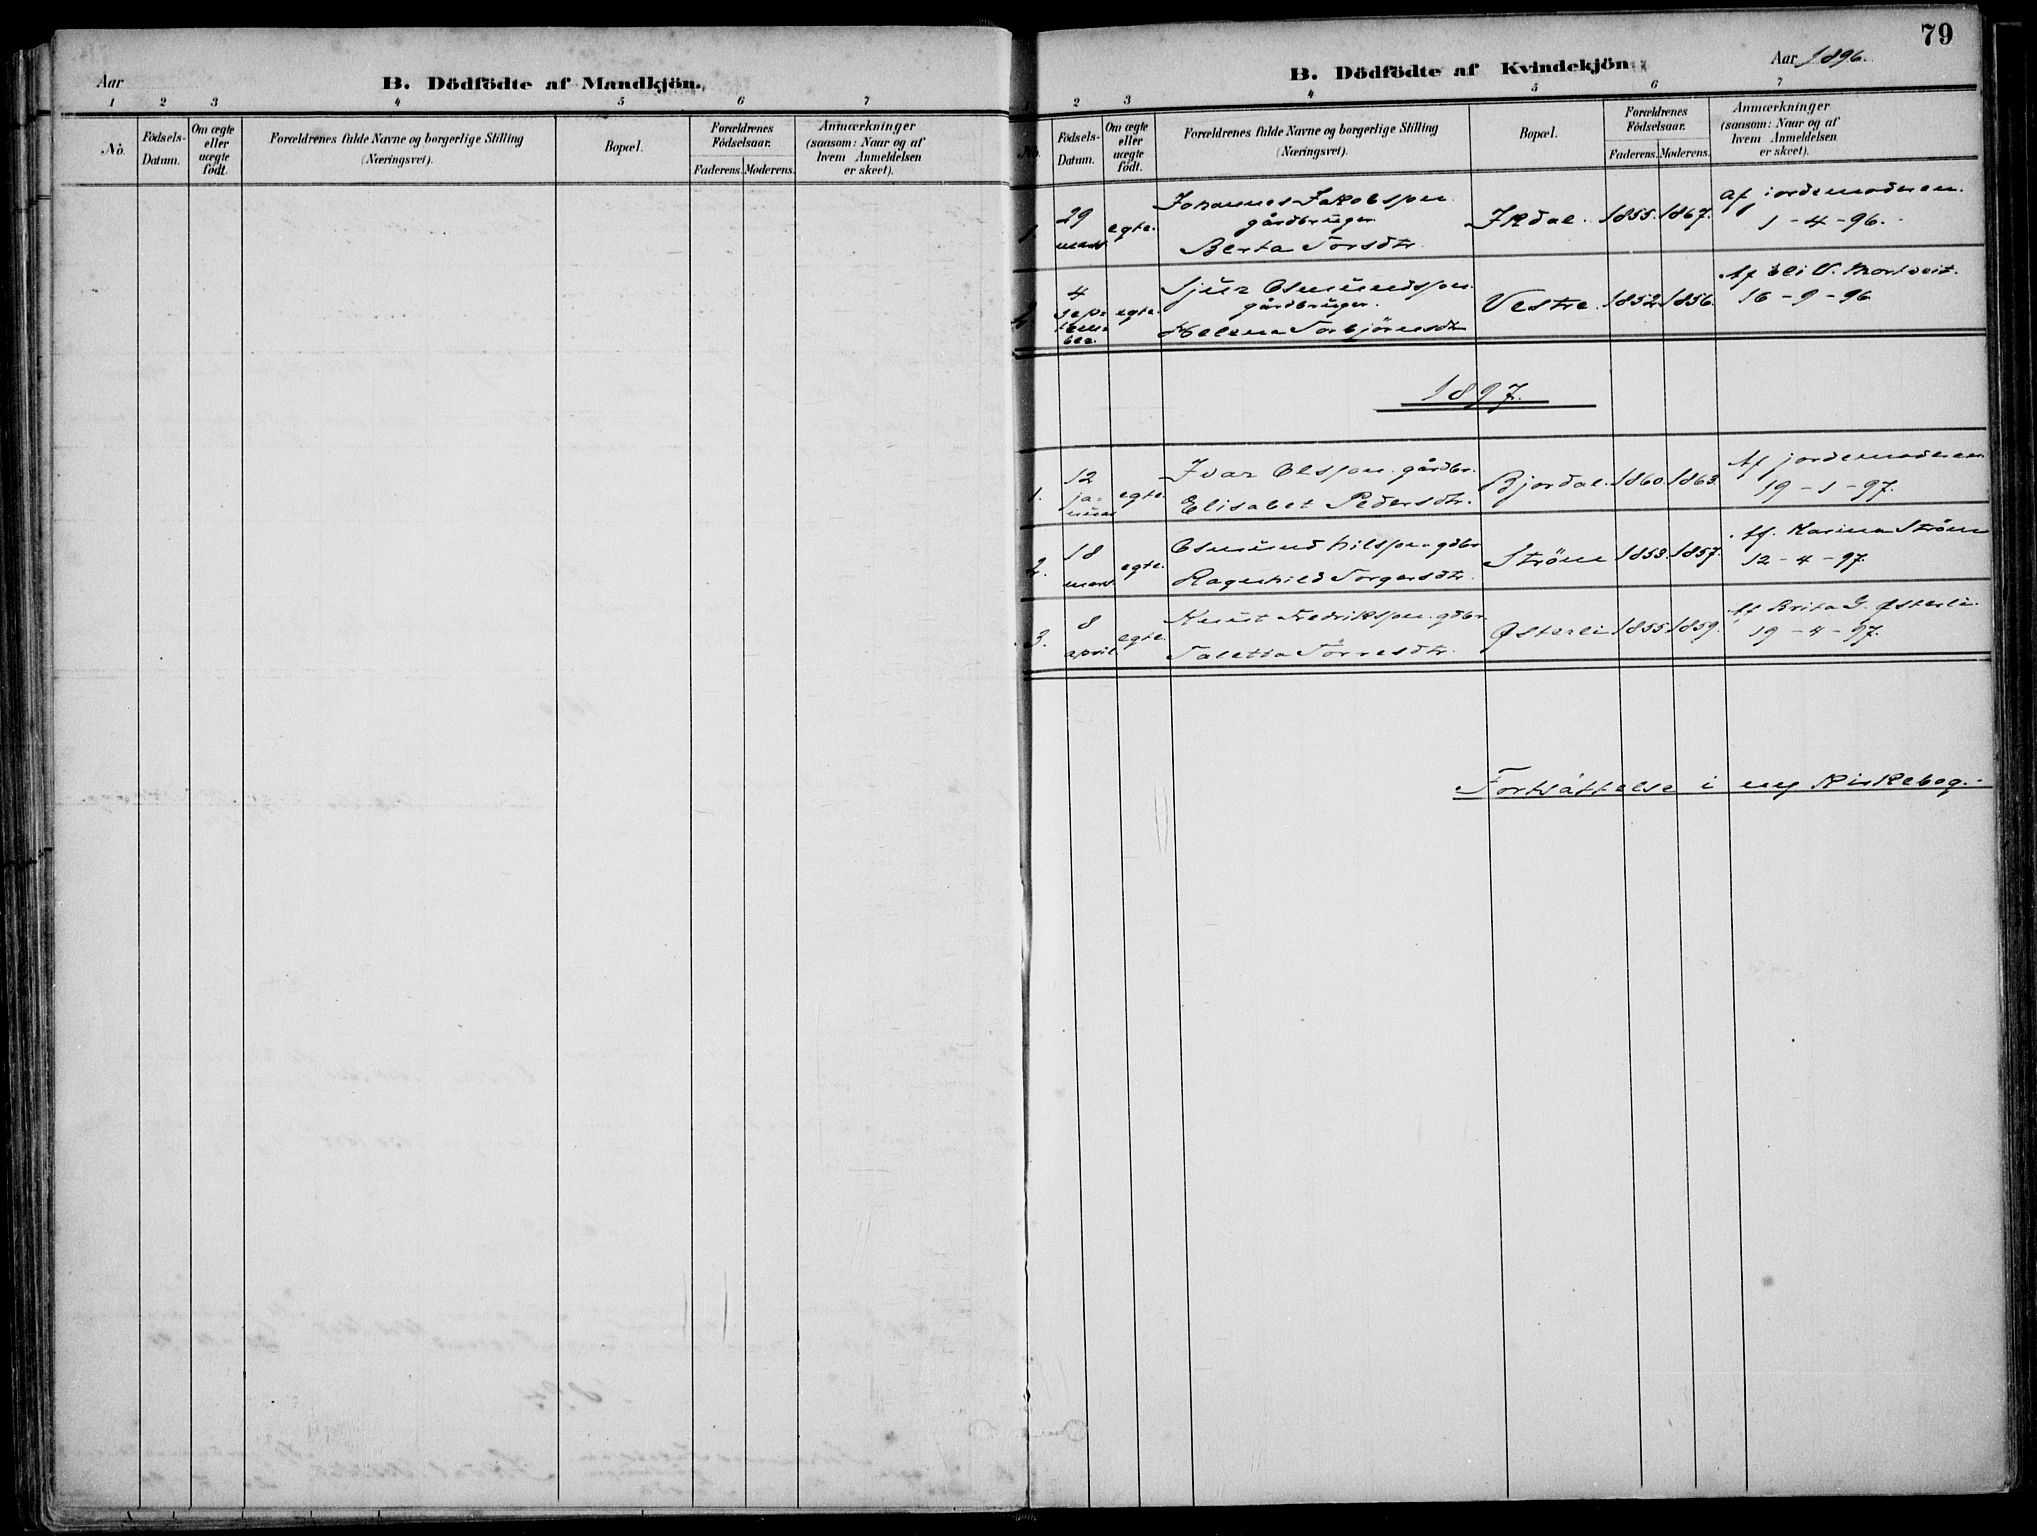 Aar
B. Dödfödte af Mandkjön.
1 2 3 4 5 6 7
No. Födsels-Datum. Om ægte eller uægte födt. Forældrenes fulde Navne og borgerlige Stilling (Næringsvei). Bopæl. Forældrenes Födselsaar. Faderens. Moderens. Anmærkninger (saasom: Naar og af hvem Anmeldelsen er skeet).
79
B. Dödfödte af Kvindekjön
Aar 1896.
1 2 3 4 5 6 7
No. Födsels-Datum. Om ægte eller uægte födt. Forældrenes fulde Navne og borgerlige Stilling (Næringsvei). Bopæl. Forældrenes Födselsaar. Faderens. Moderens. Anmærkninger (saasom: Naar og af hvem Anmeldelsen er skeet).
1. 29 mars egte. Johannes Jakobssen gårdbruger Berta Torsdtr. Ikdal. 1855. 1867. Af jordemoderen. 1-4-96.
2. 4 september. egte. Sjur Osmundssen gårdbruger. Helena Torbjörnsdtr Vestre. 1852. 1856. Af Eli V. 16-9-96
1897.
1. 12 januar egte. Ivar Olssen. gårdbr. Elisabet Pedersdtr. Bjordal. 1860. 1863. Af jordemoderen 19-1-97.
2. 18 mars. egte. Osmund Nilssen gdbr Ragnhild Torgersdtr. Ströme 1853. 1857. Af. Karina Ströme 12-4-97.
3. 8 april. egte. Knut Fredrikssen. gdbr. Saletta Torresdtr. Østerli 1855. 1859. Af Brita G. Østerli. 19-4-97.
Fortsättelse i ny Kirkebog.